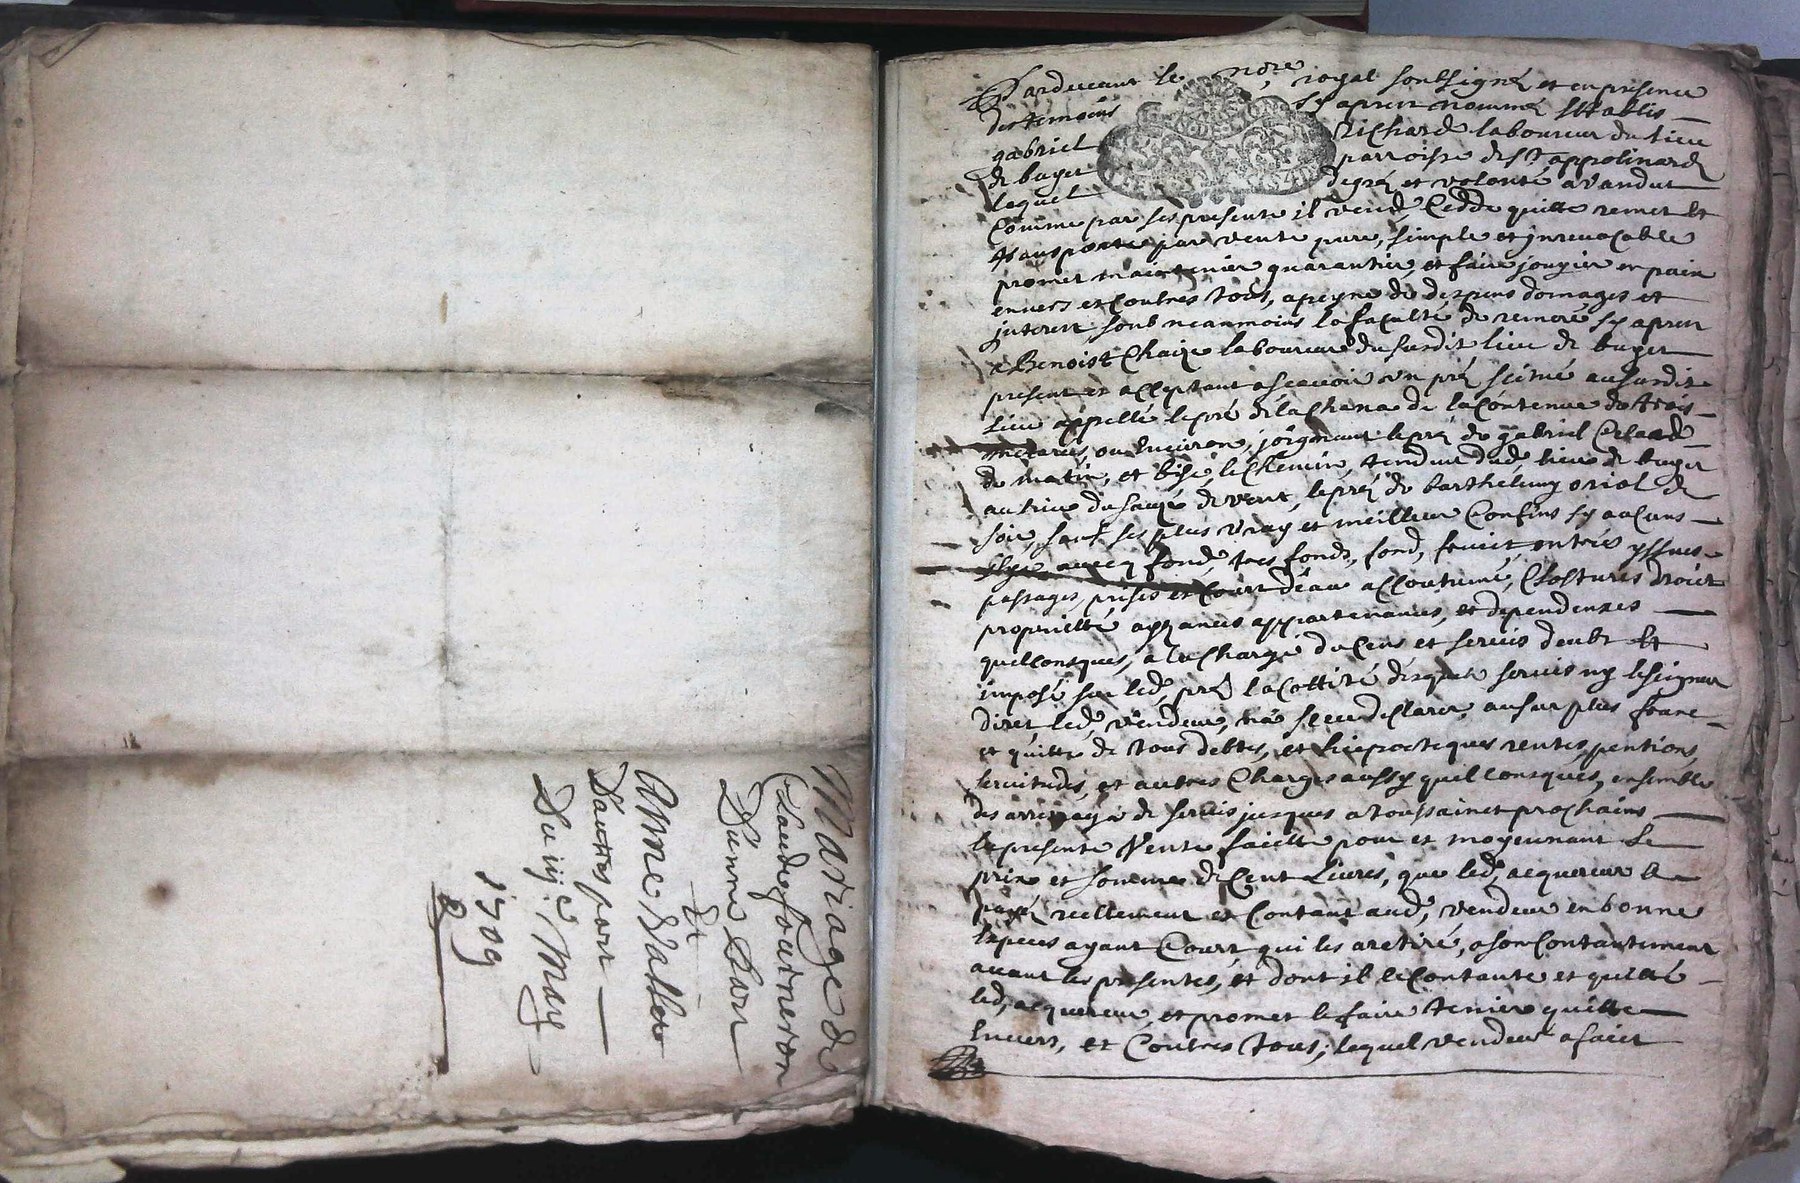 Mariage de
Claude fourneron
D'unne Part
Et
Anne Vallet
D'autres part
Du iije May
1709
Pardevant le nore royal soubsigné et en presence
des temoins sy aprest nommés Establis
gabriel Richard laboureur du lieu
de buget parroisse de st appolinard
lequel de gré et volonté a vandut
Comme par ses presente il vend, Cedde quitte remet Et
transporte par vente pure, simple et jnrevocable
promet maintenier guarantier, et faire jouyier en paix
envers et Contres tous, a peyne de despens domages et
jnterest, soub neanmoins la faculté de remeré sy aprest
a Benoist Chaize laboureur du susdit lieu de buget
present et acceptant ascavoir un pré scitué au susdit
Lieu appellé le pré de la Chana de la Contenue de trois
meterés, ou Environ, joignant le pré de gabriel
de matin, et bise, le Chemin, tendant dud, lieu de buget
au lieu du sauzé de vent, le pré de barthelemy oriol de
soir, sauf ses plus vray et meilleur Confins sy aucuns
avecq fond, tres fonds, fond, fruict entrés yssues
passages, prises et Court d'eau accoutumé, Clostures droict
proprietté ayzances appartenances, et dependenses
quelconsques, a la Charge du Cens et servis deubt Et
imposé sur led, pré la Cottité desquels servis ny le seigneur
diret led, vendeur, n'a sceu declarer, au surplus franc
et quitte de tous debtes, et hiepoteques rentes, pentions,
servitudes, et autres Charges aussy quelconsques, ensemble
des arreyage de servis jusques a toussainct prochains
la presente Vente faicte pour et moyennant Le
prix et somme de Cent Livres, que led, acquereur a
payé reellement et Contant aud, vendeur en bonne
Especes ayant Court, qui les a retiré, a son Contantement
avant les presentes, et dont il le Contante et quitté
led, acquereur, et promet le faire tenier quitte
Envers, et Contres tous; lequel vendeur a faict